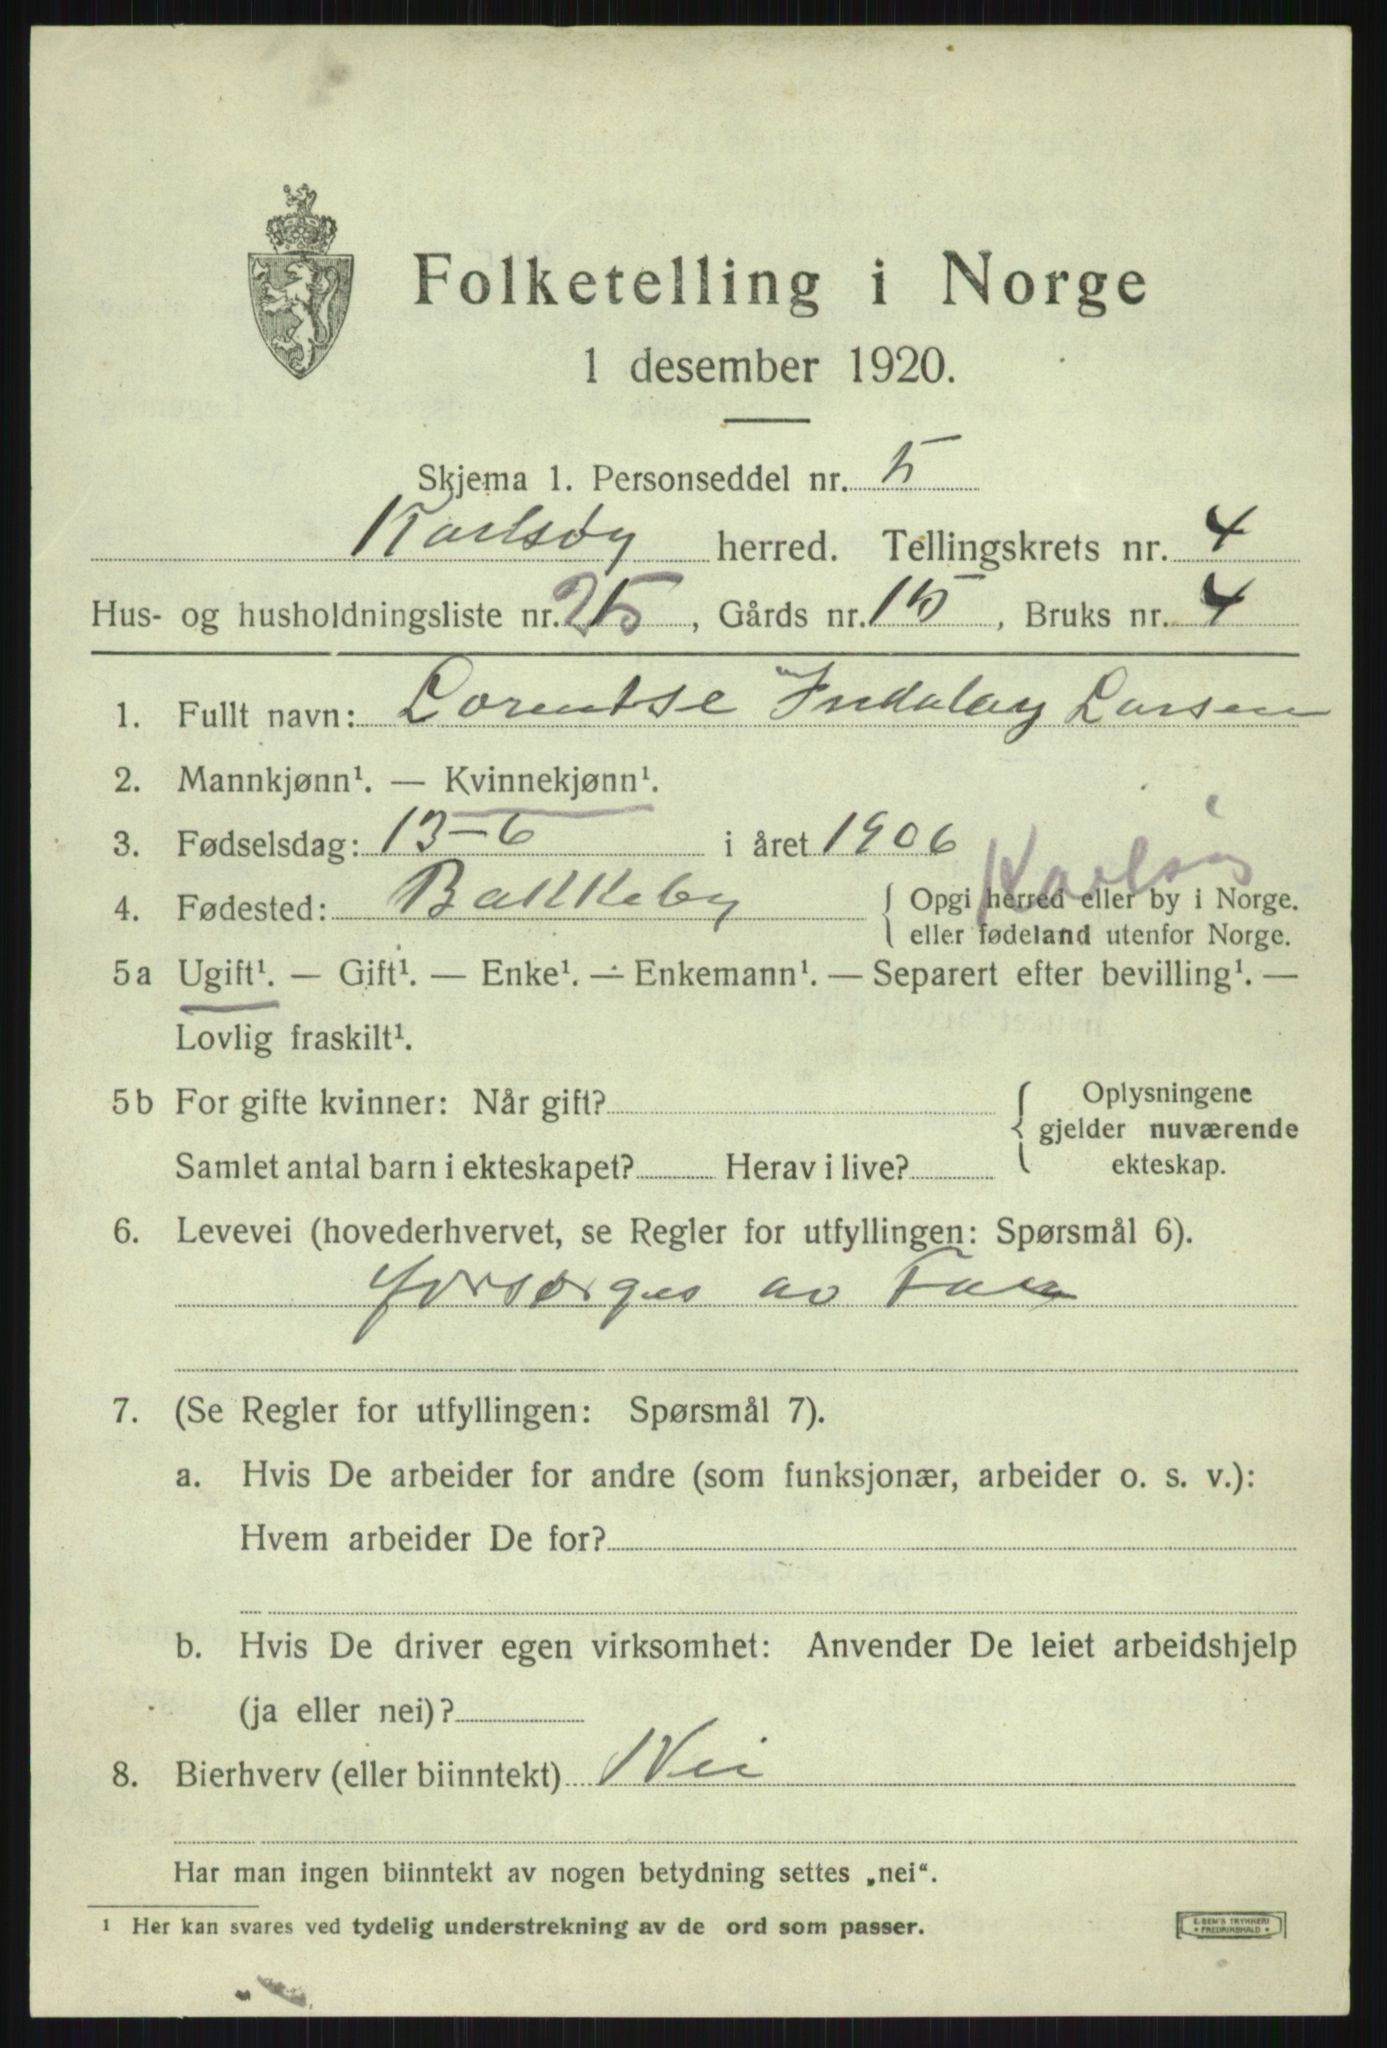 Folketelling i Norge
1 desember 1920.
Skjema 1. Personseddel nr. 5
Karlsøy herred. Tellingskrets nr. 4
Hus- og husholdningsliste nr. 25, Gårds nr. 15, Bruks nr. 4
1. Fullt navn: Lorentse Larsen
2. Mannkjønn¹. — Kvinnekjønn¹.
3. Fødselsdag: 13-6 i året 1906
Karlsøy
4. Fødested: Bakkeby { Opgi herred eller by i Norge.
eller fødeland utenfor Norge.
5a Ugift¹. — Gift¹. — Enke¹. — Enkemann¹. — Separert efter bevilling¹. —
Lovlig fraskilt¹.
5b For gifte kvinner: Når gift? { Oplysningene
gjelder nuværende
Samlet antal barn i ekteskapet? Herav i live? ekteskap.
6. Levevei (hovederhvervet, se Regler for utfyllingen: Spørsmål 6).
forsørges av Far
7. (Se Regler for utfyllingen: Spørsmål 7).
a. Hvis De arbeider for andre (som funksjonær, arbeider o. s. v.):
Hvem arbeider De for?
b. Hvis De driver egen virksomhet: Anvender De leiet arbeidshjelp
(ja eller nei)?
8. Bierhverv (eller biinntekt) Nei
Har man ingen biinntekt av nogen betydning settes „nei“.
¹ Her kan svares ved tydelig understrekning av de ord som passer.
E. SEM'S TRYKKERI
FREDRIKSHALD